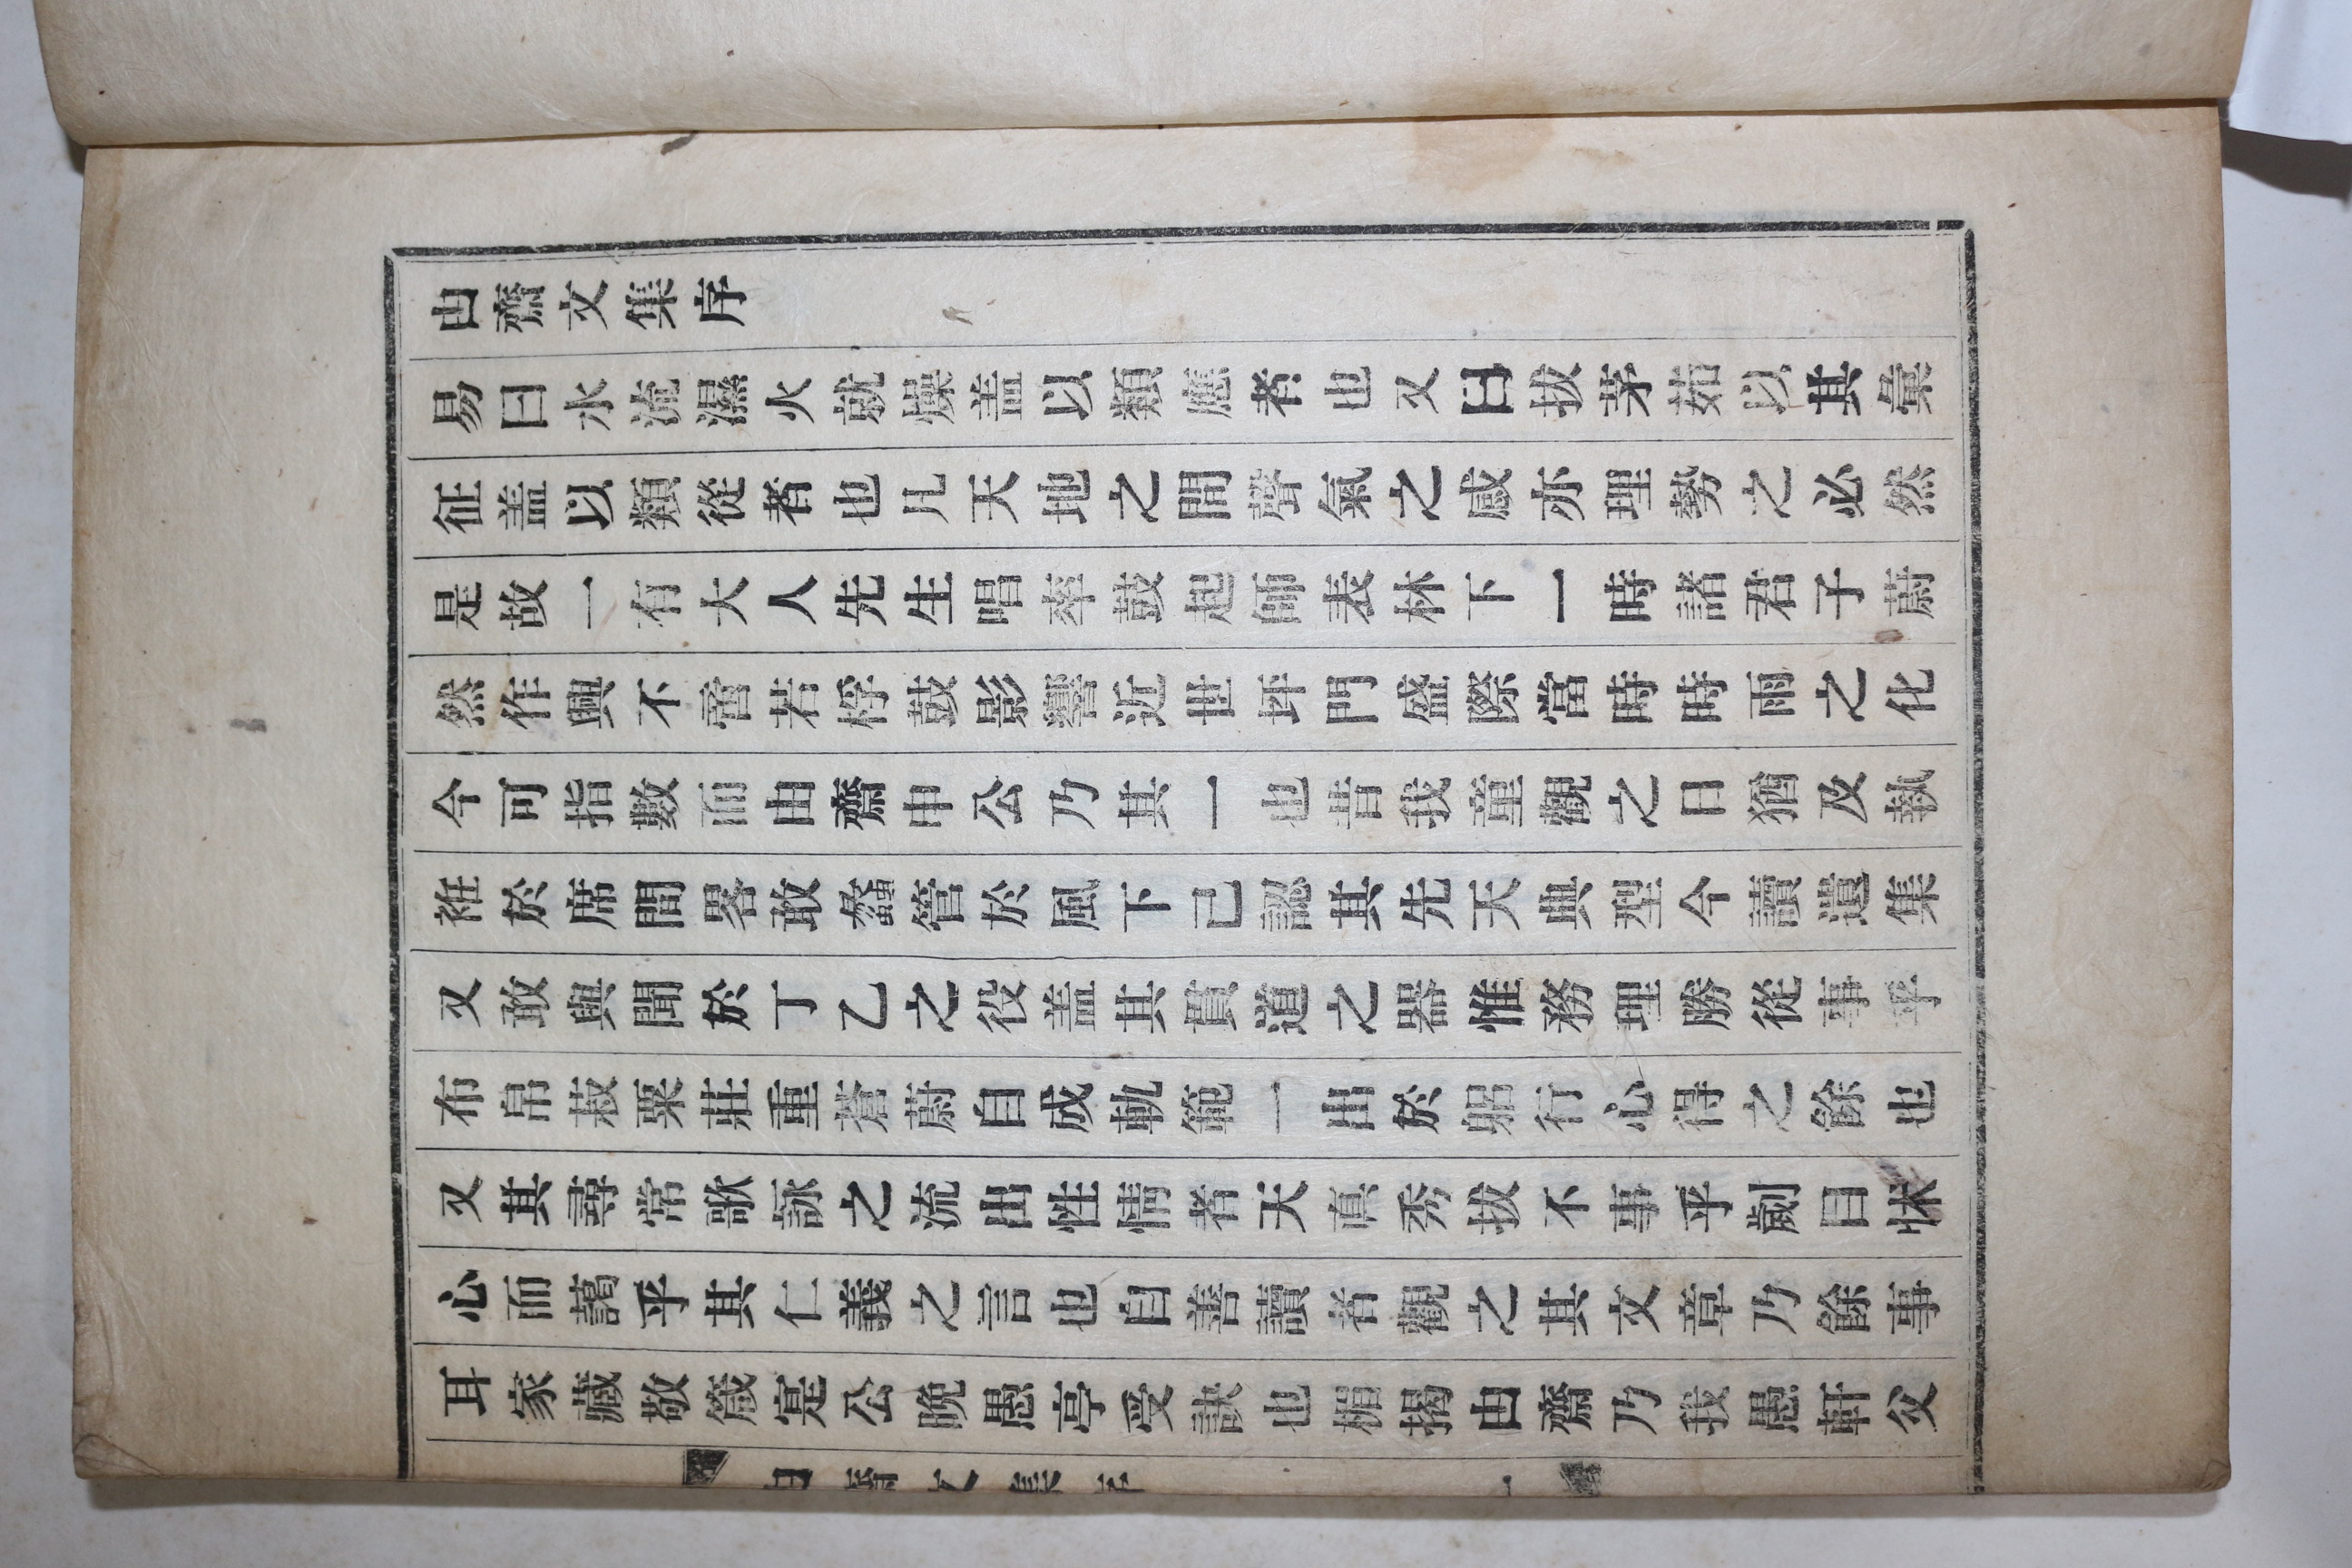 由齋文集序
易曰水流濕火就燥盖以類應者也又曰拔茅茹以其彙
征盖以類從者也凡天地之間聲氣之感亦理勢之必然
是故一有大人先生唱率鼓起師表林下一時諸君子蔚
然作興不啻若桴鼓影響近世坪門盛際當時時雨之化
今可指數而由齋申公乃其一也昔我童觀之日猶及執
袵於席間畧敢蠡管於風下己認其先天典型今讀遺集
又敢與聞於丁乙之役盖其貫道之器惟務理勝從事乎
布帛菽粟莊重蒼蔚自成軌範一出於躬行心得之餘也
又其尋常歌詠之流出性情者天眞秀拔不事乎劌目怵
心而藹乎其仁義之言也自善讀者觀之其文章乃餘事
耳家藏敬箴寔公晚愚亭受訣也楣揭由齋乃我愚軒父
由齋文集序 一